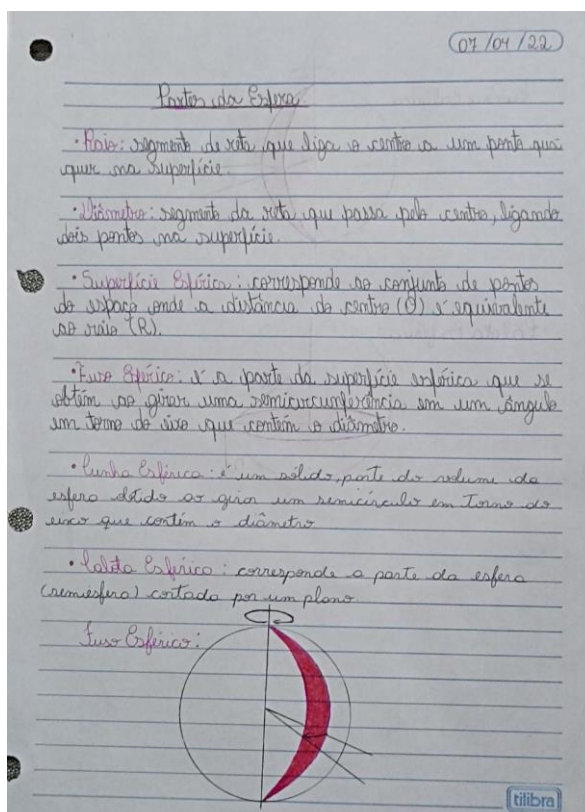 07/04/22
Partes da Esfera
• Raio: segmento de reta que liga o centro a um ponto qual
quer na superfície.
• Diâmetro: segmento da reta que passa pelo centro, ligando
dois pontos na superfície.
• Superfície Esférica: corresponde ao conjunto de pontos
do espaço onde a distância do centro (O) é equivalente
ao raio (R).
• Fuso Esférico: é a parte da superfície esférica que se
obtém ao girar uma semicircunferência em um ângulo
em torno do eixo que contém o diâmetro.
• Cunha Esférica: é um sólido, parte do volume da
esfera obtido ao girar um semicírculo em torno do
eixo que contém o diâmetro
• Calota Esférica: corresponde a parte da esfera
(semiesfera) cortada por um plano.
Fuso Esférico:
tilibra